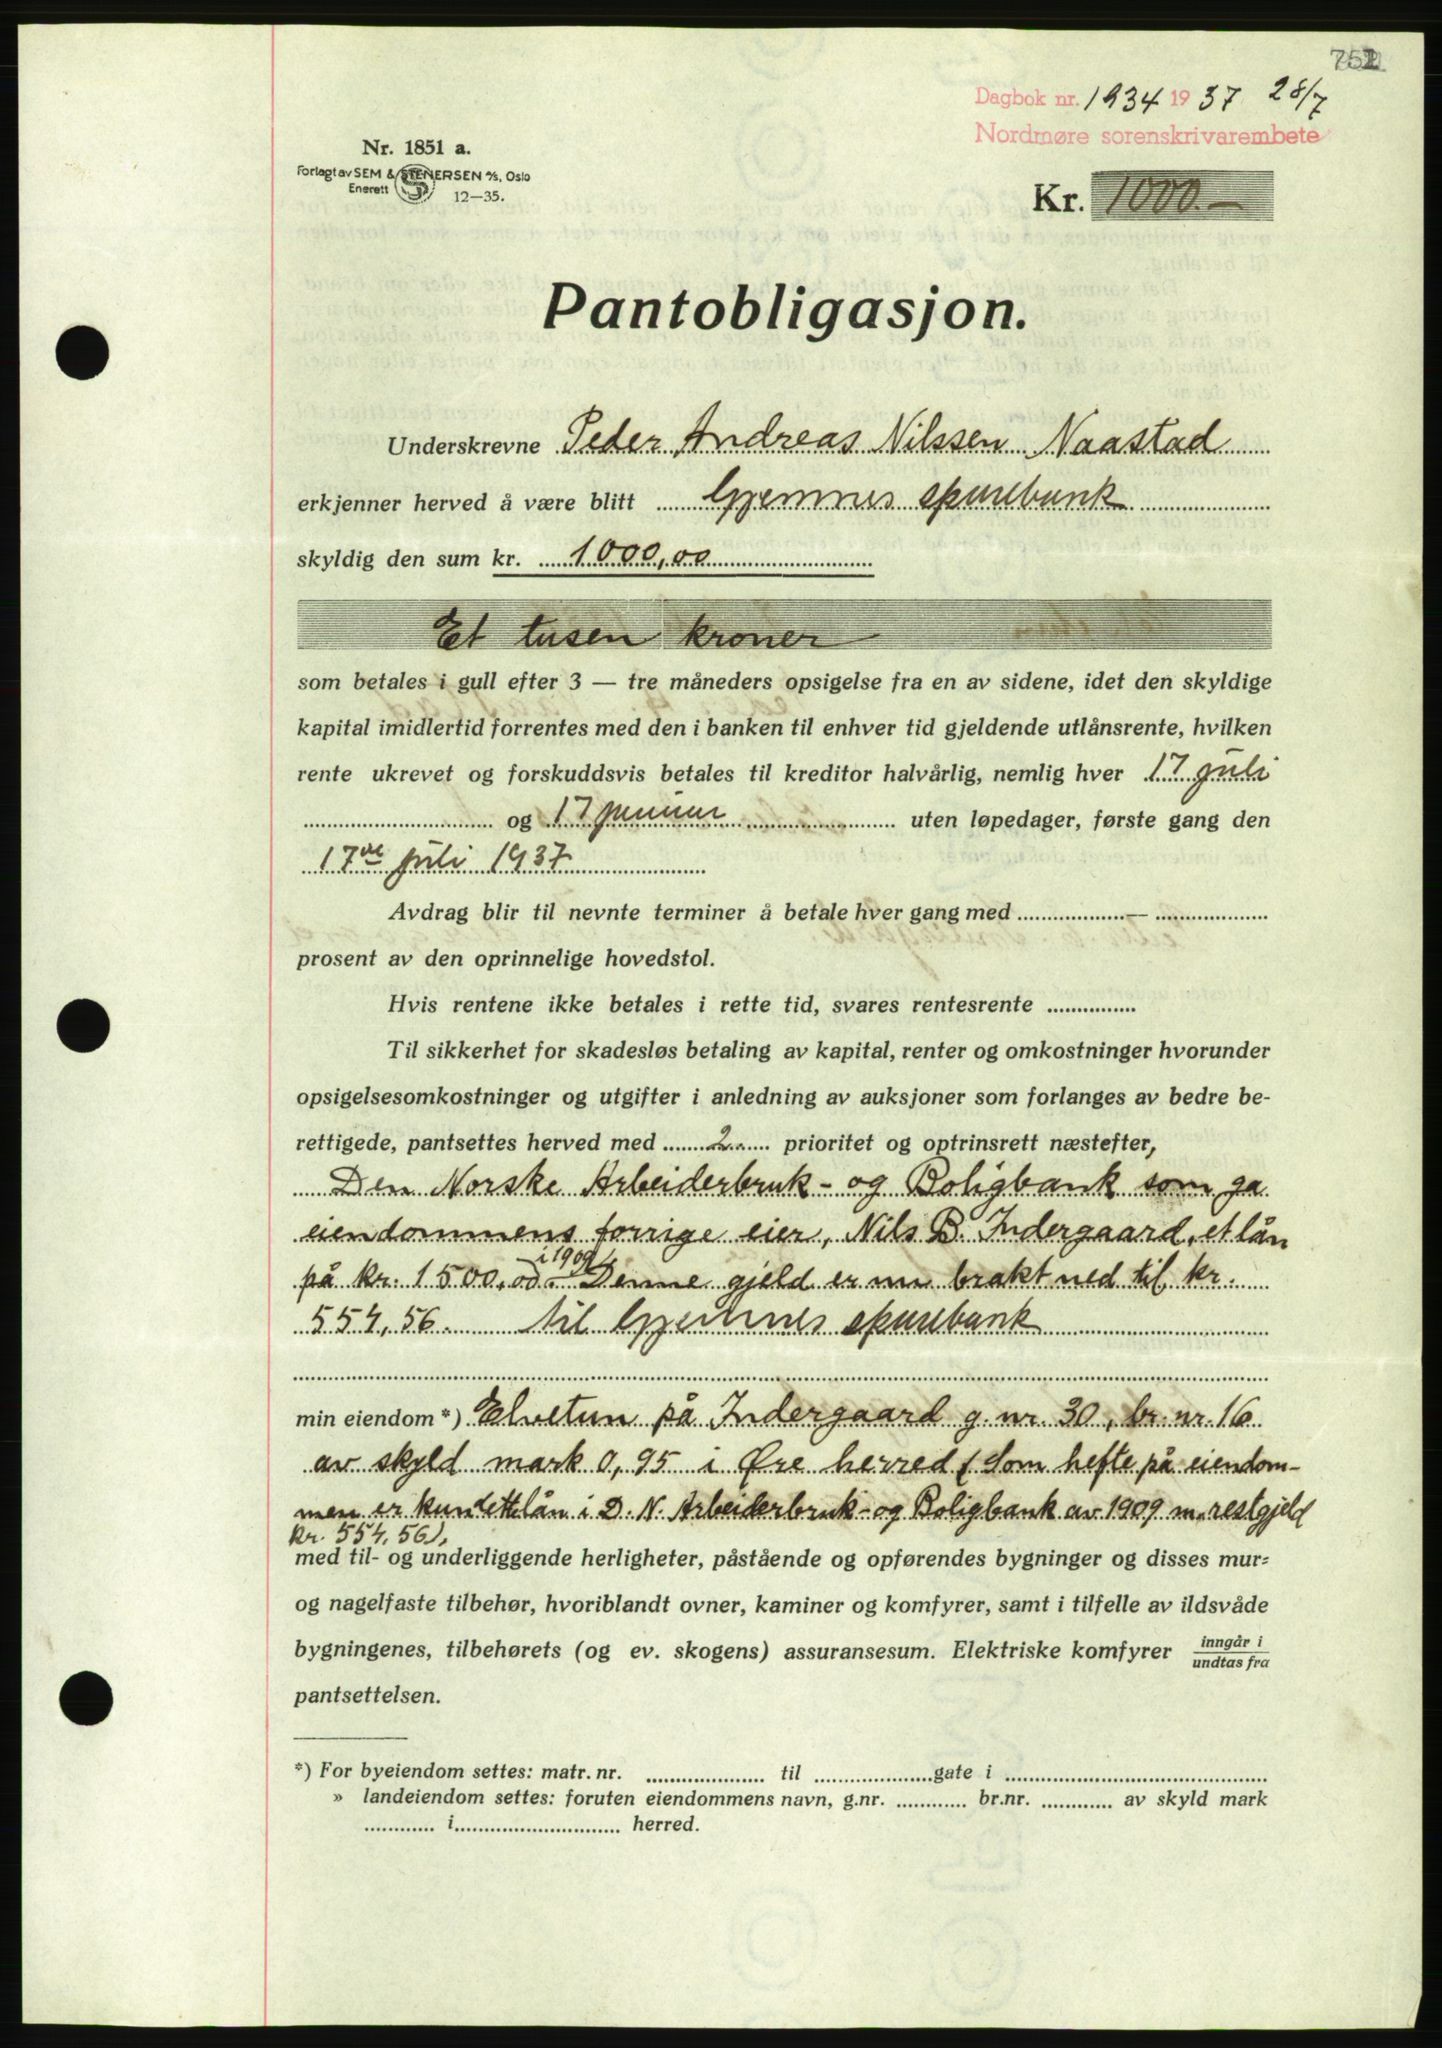 Dagbok nr. 1934 1937 28/7
Nordmøre sorenskrivarembete
Nr. 1851 a.
Forlagt av SEM & STENERSEN A/S, Oslo
Enerett
12—35.
Kr. 1000.—
Pantobligasjon.
Underskrevne Peder Andreas Nilssen Naastad
erkjenner herved å være blitt Gjemnes sparebank
skyldig den sum kr. 1000,00
Et tusen kroner
som betales i gull efter 3 — tre måneders opsigelse fra en av sidene, idet den skyldige
kapital imidlertid forrentes med den i banken til enhver tid gjeldende utlånsrente, hvilken
rente ukrevet og forskuddsvis betales til kreditor halvårlig, nemlig hver 17 juli
og 17 januar uten løpedager, første gang den
17de juli 1937
Avdrag blir til nevnte terminer å betale hver gang med —
prosent av den oprinnelige hovedstol.
Hvis rentene ikke betales i rette tid, svares rentesrente
Til sikkerhet for skadesløs betaling av kapital, renter og omkostninger hvorunder
opsigelsesomkostninger og utgifter i anledning av auksjoner som forlanges av bedre be-
rettigede, pantsettes herved med 2. prioritet og optrinsrett næstefter,
Den Norske Arbeiderbruk- og Boligbank som ga
eiendommens forrige eier, Nils B. Indergaard, et lån
i 1909
på kr. 1500,00. Denne gjeld er nu brakt ned til kr.
554,56. til Gjemnes sparebank
min eiendom *) Elvetun på Indergaard g. nr. 30, br. nr. 16
av skyld mark 0,95 i Øre herred (Som hefte på eiendom-
men er kun dette lån i D. N. Arbeiderbruk- og Boligbank av 1909 m. restgjeld
kr. 554,56),
med til- og underliggende herligheter, påstående og opførendes bygninger og disses mur-
og nagelfaste tilbehør, hvoriblandt ovner, kaminer og komfyrer, samt i tilfelle av ildsvåde
bygningenes, tilbehørets (og ev. skogens) assuransesum. Elektriske komfyrer inngår i
undtas fra
pantsettelsen.
*) For byeiendom settes: matr. nr. til gate i
» landeiendom settes: foruten eiendommens navn, g.nr. br.nr. av skyld mark
i herred.